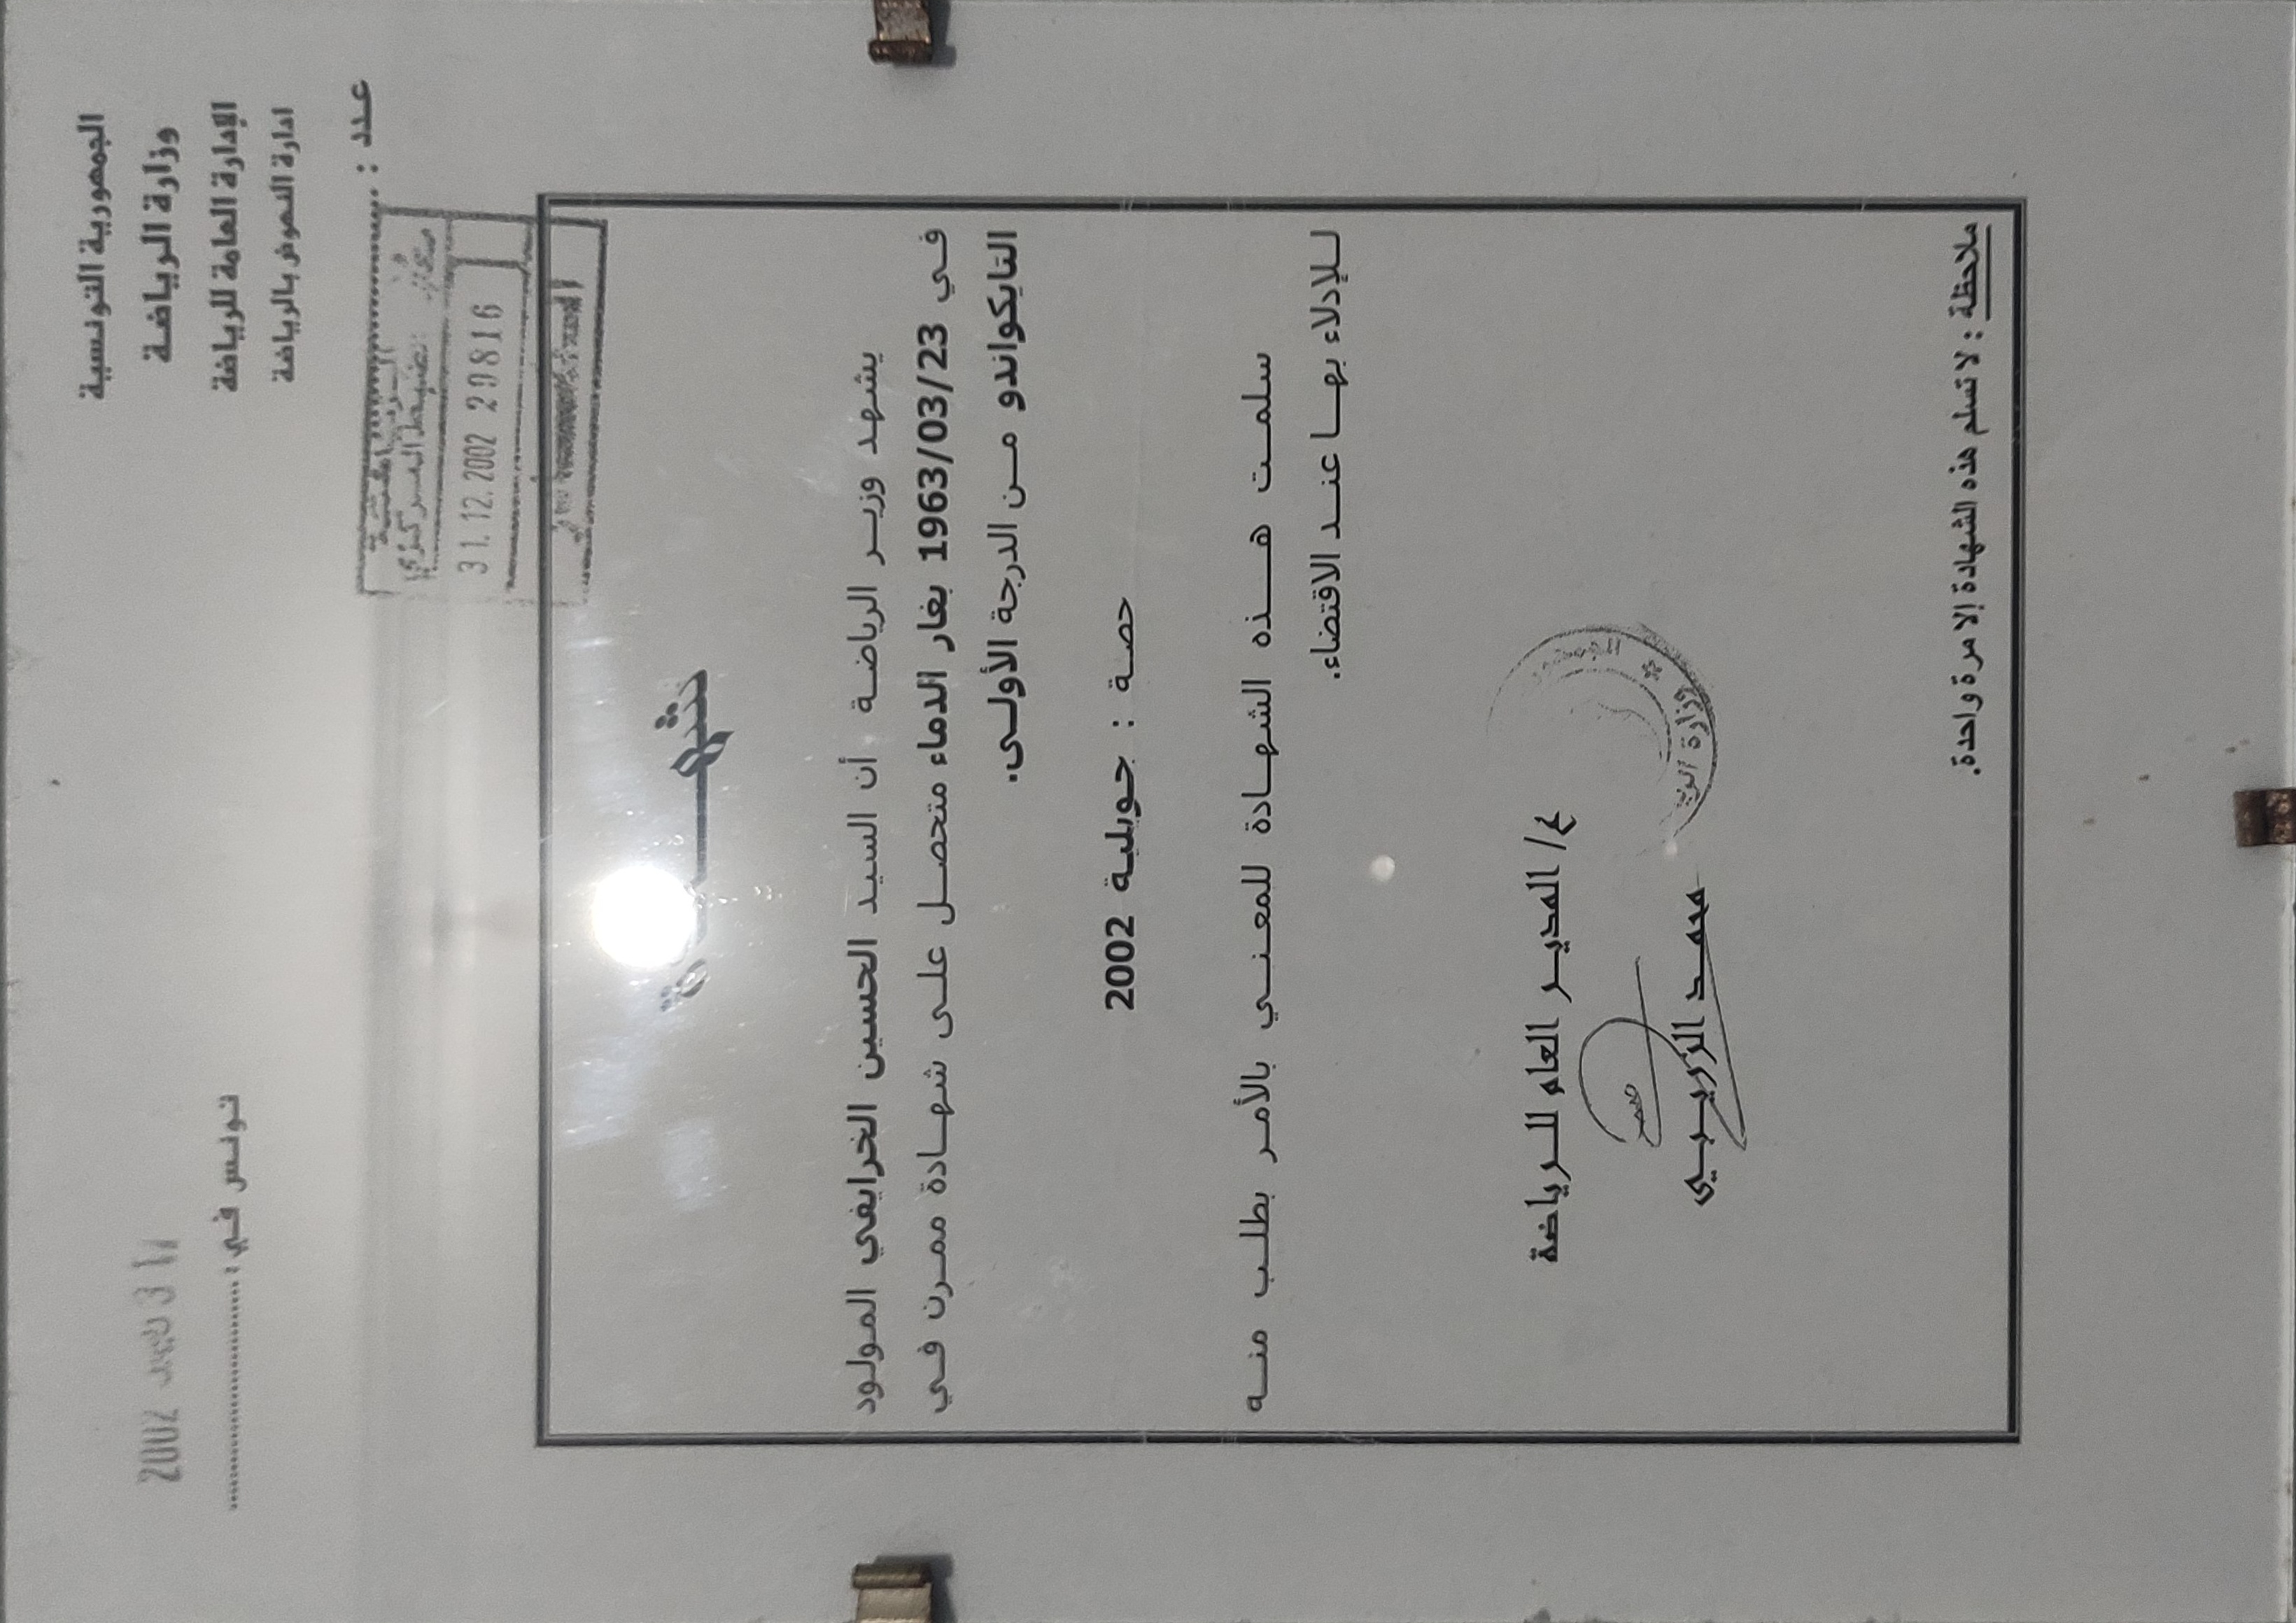 الجمهورية التونسية
وزارة الرياضة
الإدارة العامة للرياضة
ادارة النهوض بالرياضة
عدد :
31 ديسمبر 2002
تونس في :
الضبط المركزي
31.12.2002 29816
شهادة
يشهد وزير الرياضة أن السيد الحسين الخرايفي المولود
في 1963/03/23 بغار الدماء متحصل على شهادة ممرن في
التايكواندو من الدرجة الأولى.
حصة : جويلية 2002
سلمت هذه الشهادة للمعني بالأمر بطلب منه
للإدلاء بها عند الاقتضاء.
المدير العام للرياضة
محمد الزريبي
وزارة
ملاحظة : لا تسلم هذه الشهادة إلا مرة واحدة.